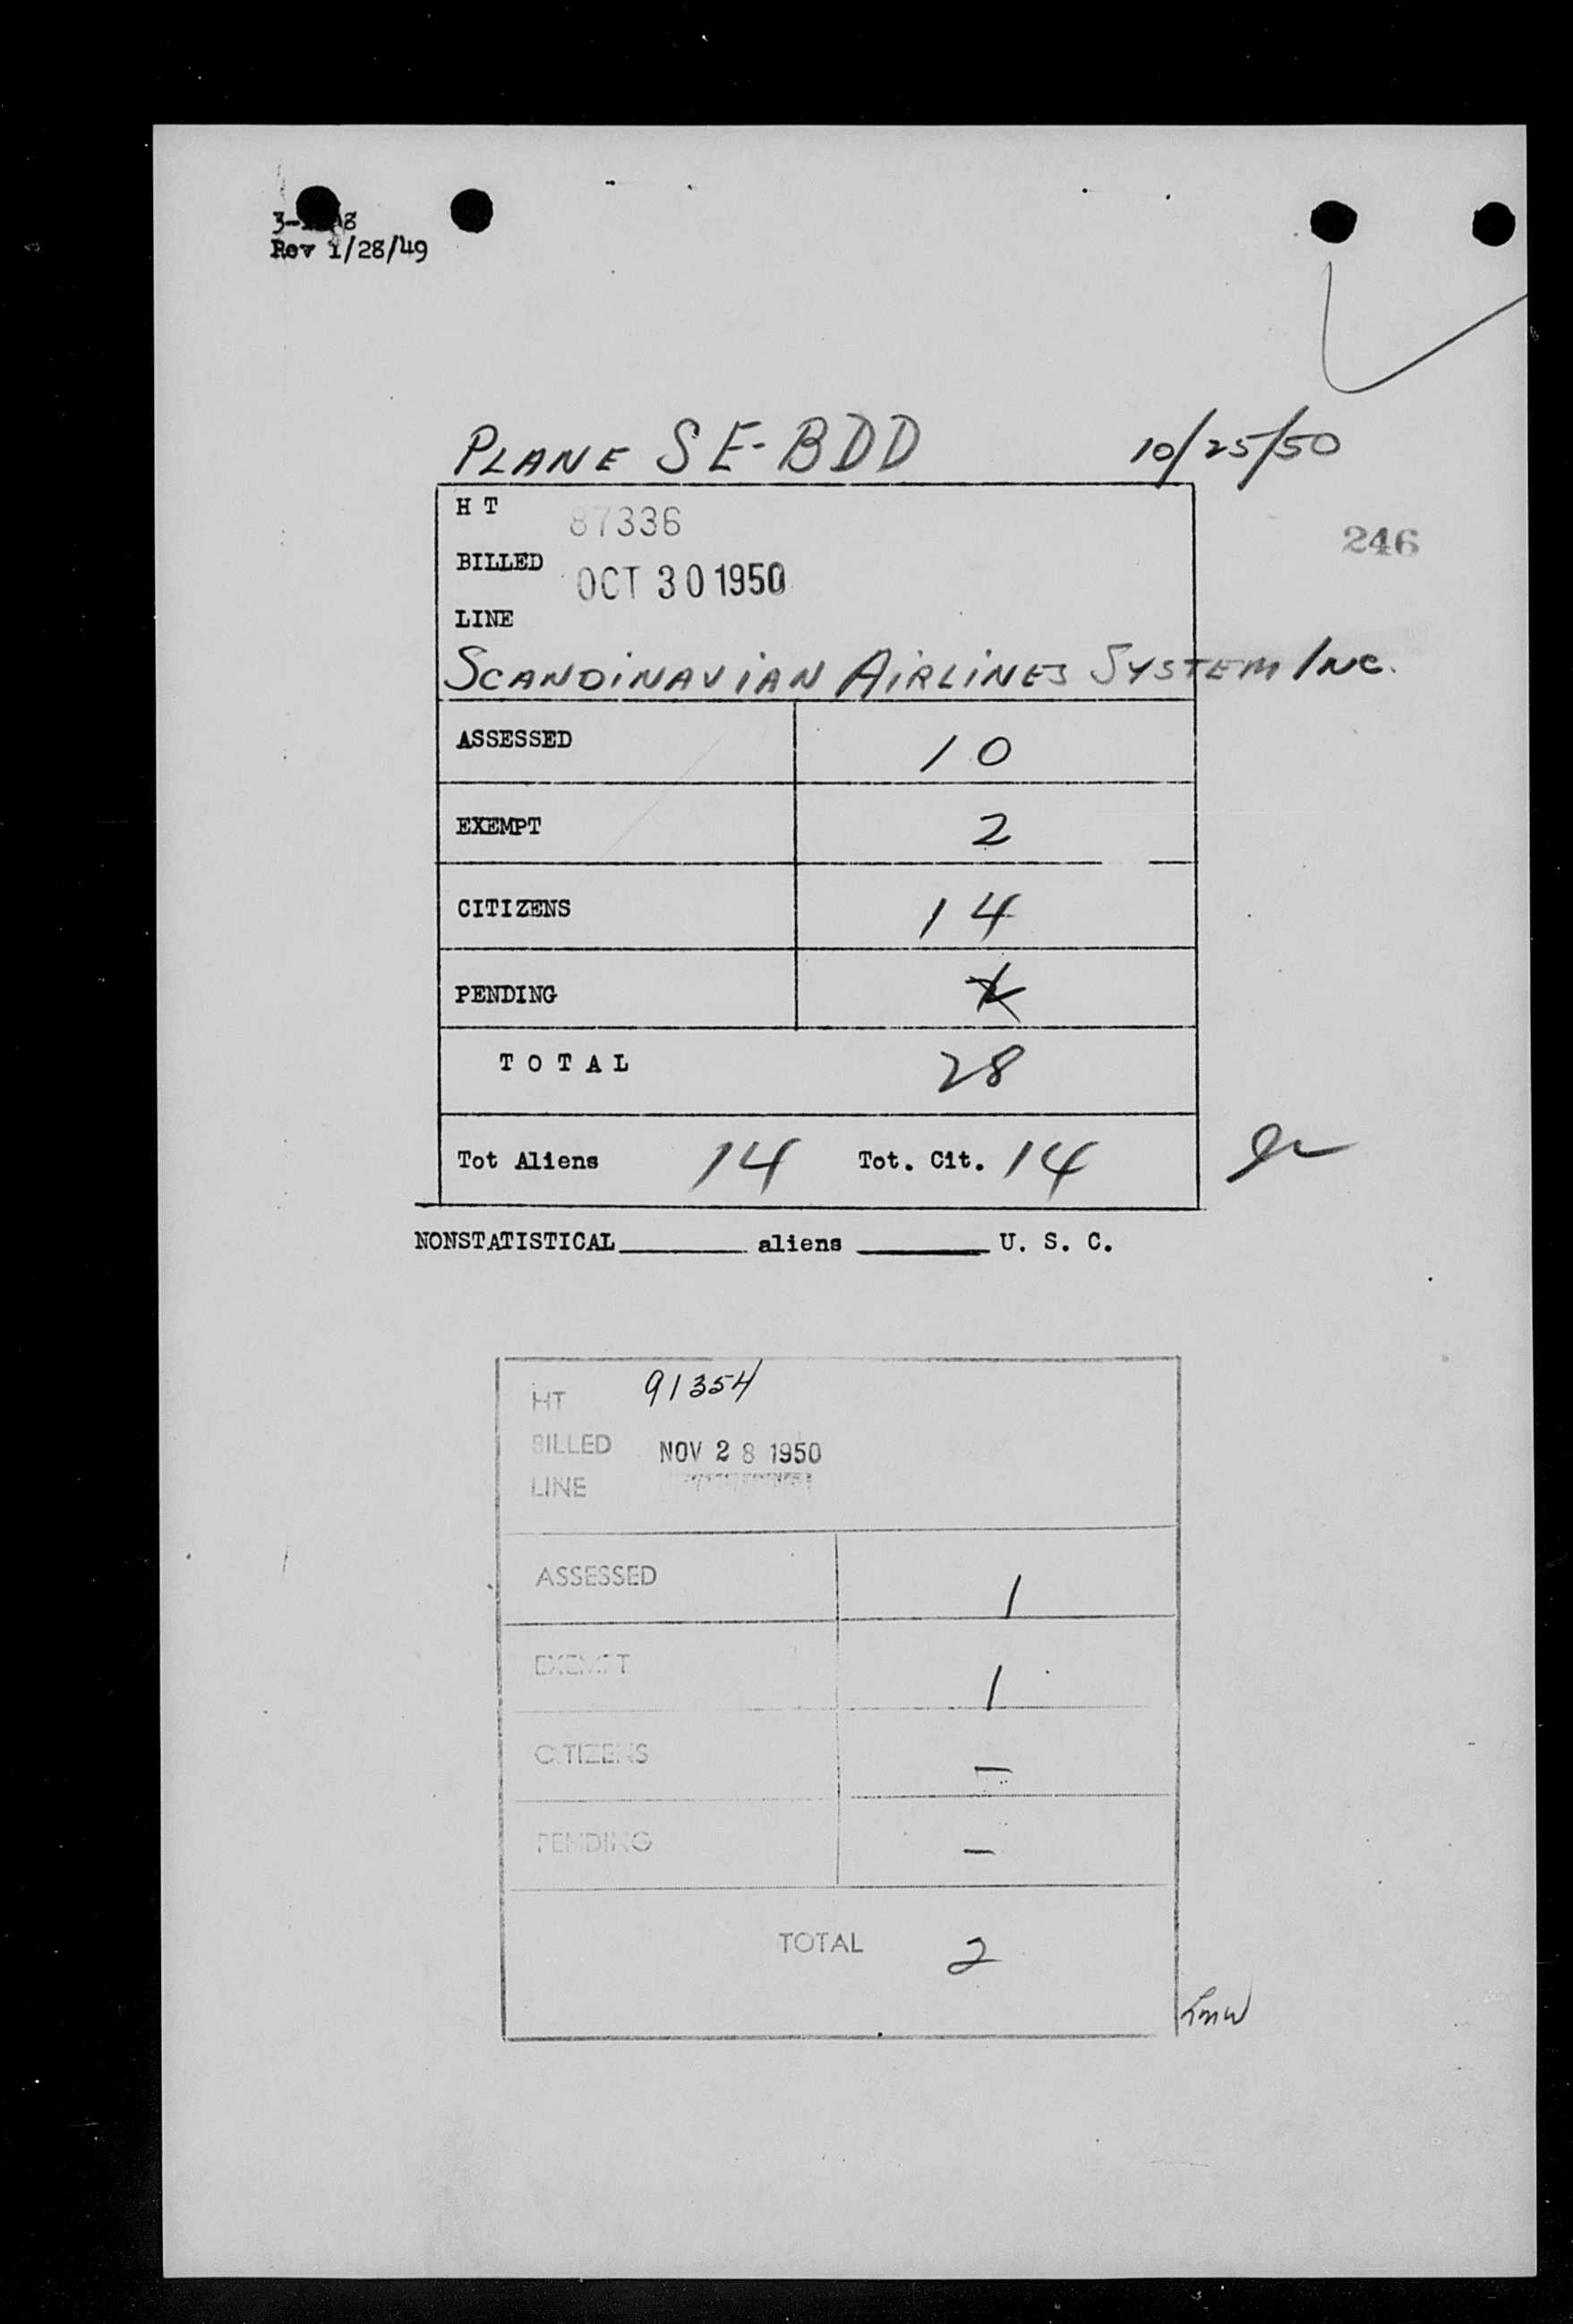 Rev 1/28/49
PLANE SE-BDD 10/25/50
H T 87336
246
BILLED OCT 30 1950
LINE
SCANDINAVIAN AIRLINES SYSTEM INC.
ASSESSED 10
EXEMPT 2
CITIZENS 14
PENDING
TOTAL 28
Tot Aliens 14 Tot. Cit. 14
NONSTATISTICAL aliens U. S. C.
HT 91354
BILLED NOV 28 1950
LINE
ASSESSED 1
EXEMPT 1
CITIZENS –
PENDING –
TOTAL 2